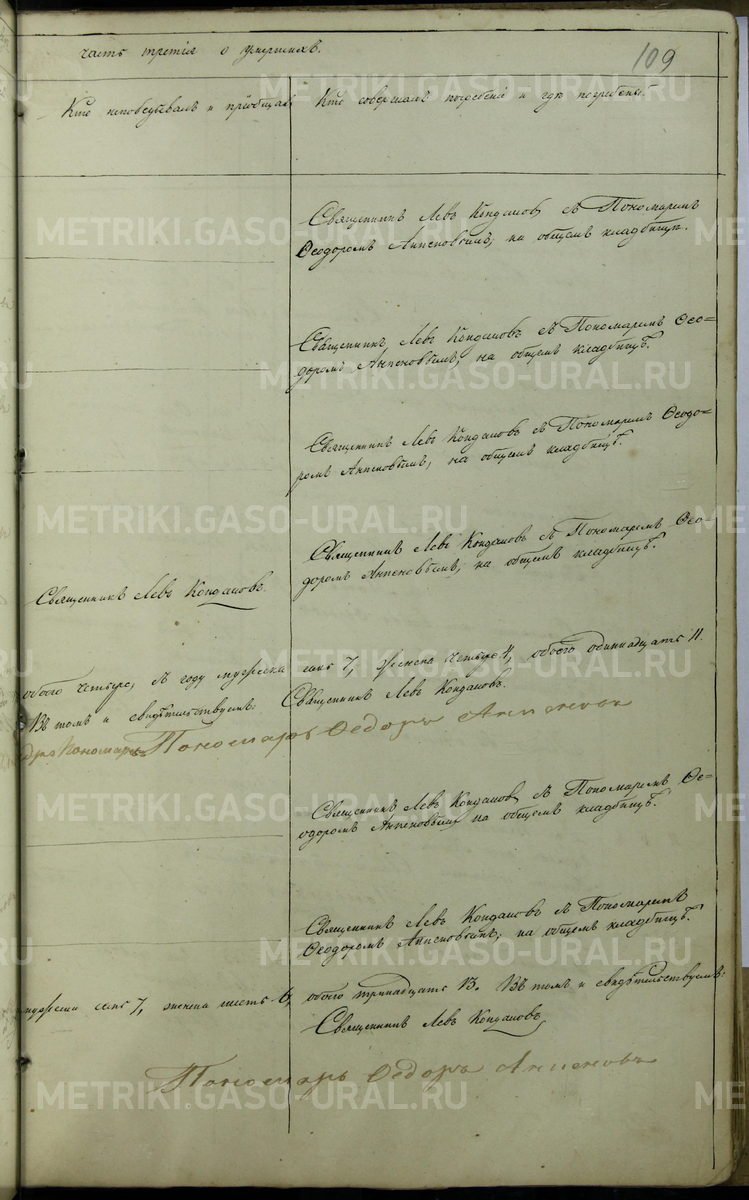 часть третія о умершихъ.
109
Кто исповѣдывалъ и пріобщалъ
Кто совершалъ погребеніе и гдѣ погребены.
Священникъ Левъ Кондаковъ съ Пономаремъ
Ѳеодоромъ Анисновымъ, на общемъ кладбищѣ.
Священникъ Левъ Кондаковъ съ Пономаремъ Ѳео=
доромъ Анисновымъ, на общемъ кладбищѣ.
Священникъ Левъ Кондаковъ съ Пономаремъ Ѳеодо=
ромъ Анисновымъ, на общемъ кладбищѣ.
Священникъ Левъ Кондаковъ.
Священникъ Левъ Кондаковъ съ Пономаремъ Ѳео-
доромъ Анисновымъ, на общемъ кладбищѣ.
обоего четыре, въ году мужеска семь 7, женска четыре 4, обоего одиннадцать 11.
Въ томъ и свидѣтельствуемъ: Священникъ Левъ Кондаковъ.
Пономарь Ѳедоръ Анисновъ
Священникъ Левъ Кондаковъ съ Пономаремъ Ѳе=
одоромъ Анисновымъ на общемъ кладбищѣ.
Священникъ Левъ Кондаковъ съ Пономаремъ
Ѳеодоромъ Анисновымъ, на общемъ кладбищѣ.
мужеска семь 7, женска шесть 6, обоего тринадцать 13. Въ томъ и свидѣтельствуемъ:
Священникъ Левъ Кондаковъ
Пономарь Ѳедоръ Анисновъ
METRIKI.GASO-URAL.RU